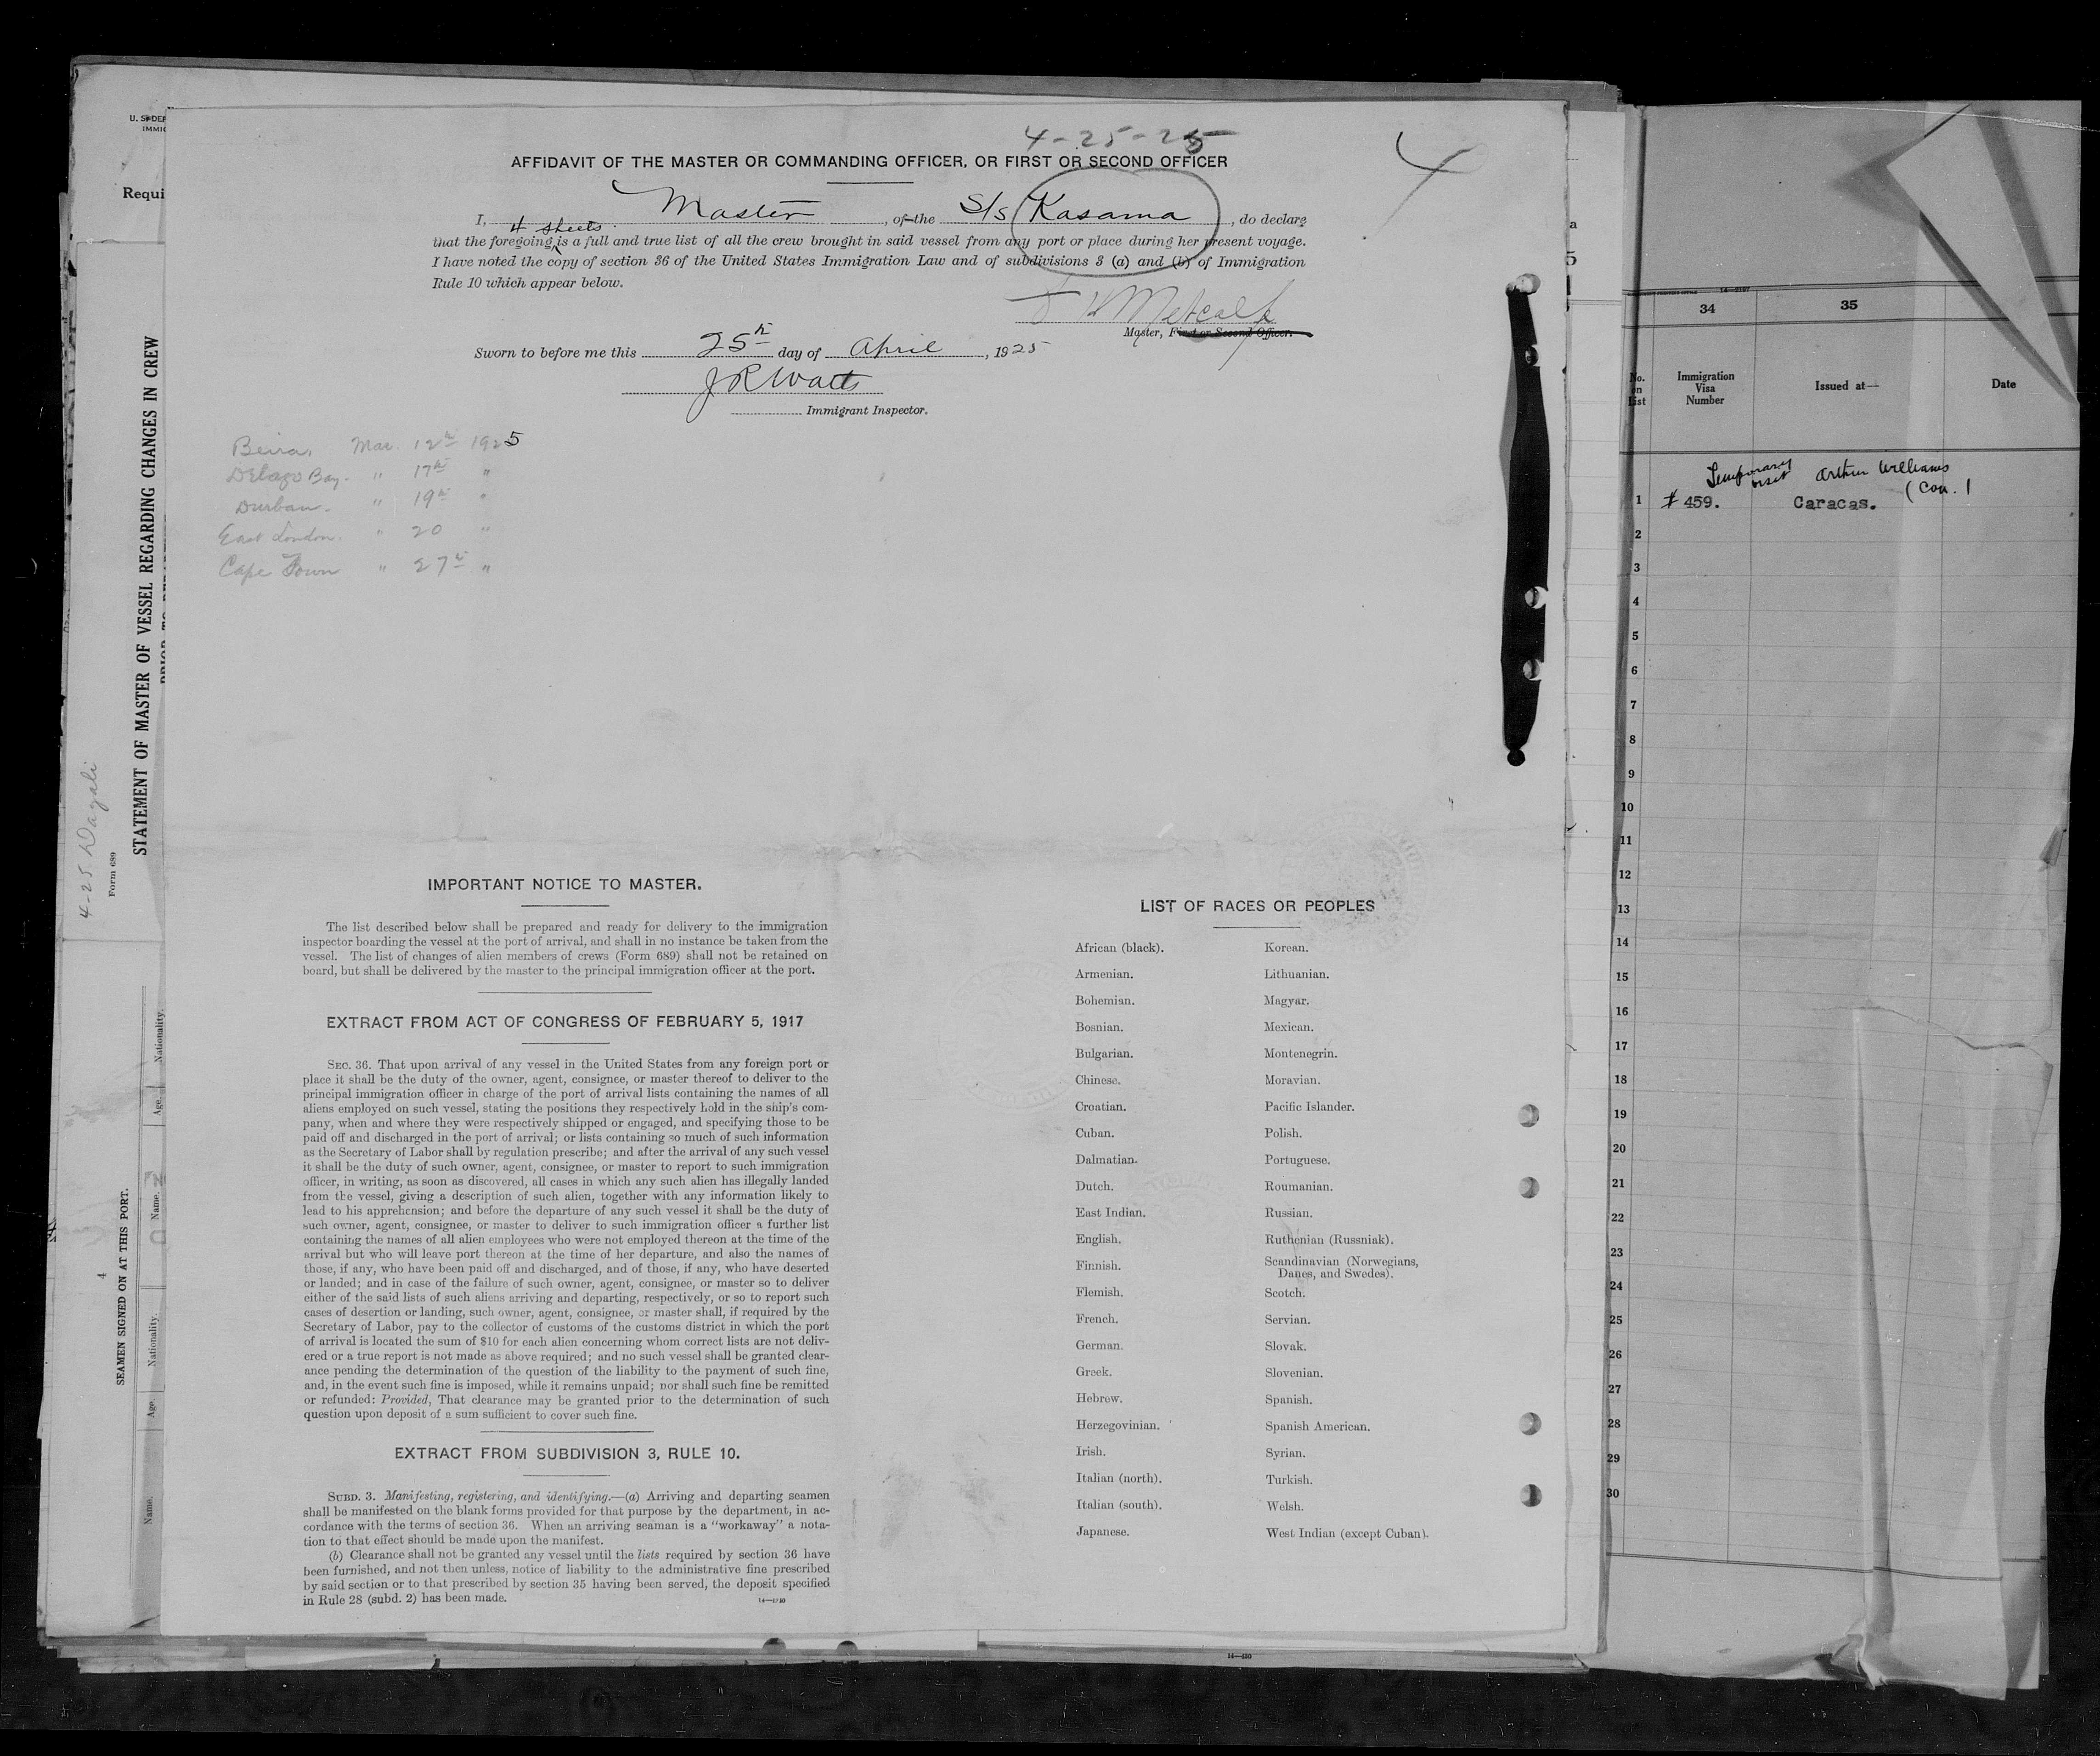 U. S. DEP
IMMIG
Requi
STATEMENT OF MASTER OF VESSEL REGARDING CHANGES IN CREW
4-25 Dagali
Form 689
Nationality.
Age.
Name.
4
SEAMEN SIGNED ON AT THIS PORT.
Nationality.
Age.
Name.
4-25-25
4
AFFIDAVIT OF THE MASTER OR COMMANDING OFFICER, OR FIRST OR SECOND OFFICER
I, Master, of the S/s Kasama, do declare
4 sheets
that the foregoing is a full and true list of all the crew brought in said vessel from any port or place during her present voyage.
I have noted the copy of section 36 of the United States Immigration Law and of subdivisions 3 (a) and (b) of Immigration
Rule 10 which appear below.
Metcalf
Master, First or Second Officer.
Sworn to before me this 25th day of April, 1925
J R Watts
Immigrant Inspector.
Beira, Mar. 12th 1925
Delago Bay. " 17th "
Durban. " 19th "
East London. " 20 "
Cape Town " 27th "
IMPORTANT NOTICE TO MASTER.
The list described below shall be prepared and ready for delivery to the immigration
inspector boarding the vessel at the port of arrival, and shall in no instance be taken from the
vessel. The list of changes of alien members of crews (Form 689) shall not be retained on
board, but shall be delivered by the master to the principal immigration officer at the port.
EXTRACT FROM ACT OF CONGRESS OF FEBRUARY 5, 1917
SEC. 36. That upon arrival of any vessel in the United States from any foreign port or
place it shall be the duty of the owner, agent, consignee, or master thereof to deliver to the
principal immigration officer in charge of the port of arrival lists containing the names of all
aliens employed on such vessel, stating the positions they respectively hold in the ship's com-
pany, when and where they were respectively shipped or engaged, and specifying those to be
paid off and discharged in the port of arrival; or lists containing so much of such information
as the Secretary of Labor shall by regulation prescribe; and after the arrival of any such vessel
it shall be the duty of such owner, agent, consignee, or master to report to such immigration
officer, in writing, as soon as discovered, all cases in which any such alien has illegally landed
from the vessel, giving a description of such alien, together with any information likely to
lead to his apprehension; and before the departure of any such vessel it shall be the duty of
such owner, agent, consignee, or master to deliver to such immigration officer a further list
containing the names of all alien employees who were not employed thereon at the time of the
arrival but who will leave port thereon at the time of her departure, and also the names of
those, if any, who have been paid off and discharged, and of those, if any, who have deserted
or landed; and in case of the failure of such owner, agent, consignee, or master so to deliver
either of the said lists of such aliens arriving and departing, respectively, or so to report such
cases of desertion or landing, such owner, agent, consignee, or master shall, if required by the
Secretary of Labor, pay to the collector of customs of the customs district in which the port
of arrival is located the sum of $10 for each alien concerning whom correct lists are not deliv-
ered or a true report is not made as above required; and no such vessel shall be granted clear-
ance pending the determination of the question of the liability to the payment of such fine,
and, in the event such fine is imposed, while it remains unpaid; nor shall such fine be remitted
or refunded: Provided, That clearance may be granted prior to the determination of such
question upon deposit of a sum sufficient to cover such fine.
EXTRACT FROM SUBDIVISION 3, RULE 10.
SUBD. 3. Manifesting, registering, and identifying.—(a) Arriving and departing seamen
shall be manifested on the blank forms provided for that purpose by the department, in ac-
cordance with the terms of section 36. When an arriving seaman is a "workaway" a nota-
tion to that effect should be made upon the manifest.
(b) Clearance shall not be granted any vessel until the lists required by section 36 have
been furnished, and not then unless, notice of liability to the administrative fine prescribed
by said section or to that prescribed by section 35 having been served, the deposit specified
in Rule 28 (subd. 2) has been made.
LIST OF RACES OR PEOPLES
African (black). Korean.
Armenian. Lithuanian.
Bohemian. Magyar.
Bosnian. Mexican.
Bulgarian. Montenegrin.
Chinese. Moravian.
Croatian. Pacific Islander.
Cuban. Polish.
Dalmatian. Portuguese.
Dutch. Roumanian.
East Indian. Russian.
English. Ruthenian (Russniak).
Finnish. Scandinavian (Norwegians,
Danes, and Swedes).
Flemish. Scotch.
French. Servian.
German. Slovak.
Greek. Slovenian.
Hebrew. Spanish.
Herzegovinian. Spanish American.
Irish. Syrian.
Italian (north). Turkish.
Italian (south). Welsh.
Japanese. West Indian (except Cuban).
14—430
a
5
34 35
No.
on
List
Immigration
Visa
Number
Issued at— Date
Temporary
visit
Arthur Williams
(Con.
1 # 459. Caracas.
2
3
4
5
6
7
8
9
10
11
12
13
14
15
16
17
18
19
20
21
22
23
24
25
26
27
28
29
30